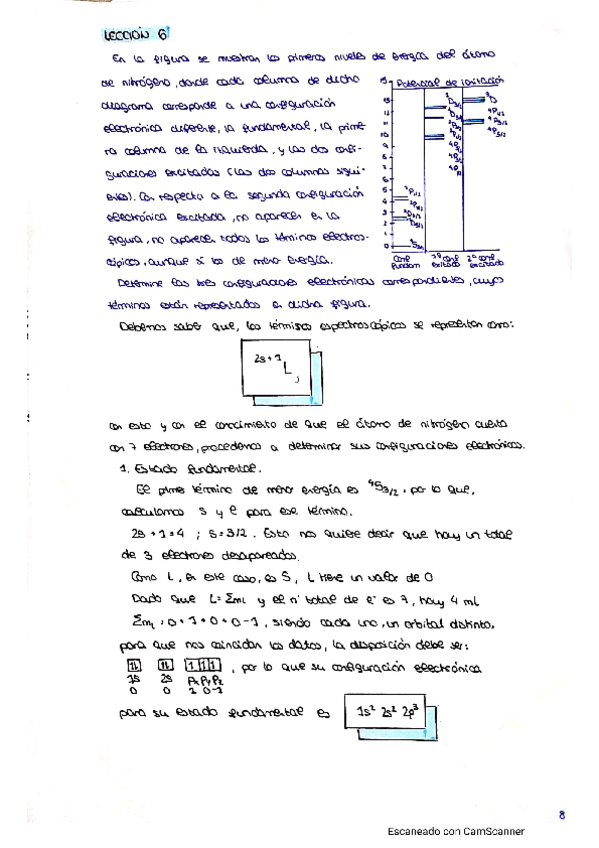 LECCIÓN 6
En la figura se muestran los primeros niveles de energía del átomo
de nitrógeno, donde cada columna de dicho
diagrama corresponde a una configuración
electrónica diferente, la fundamental, la prime-
ra columna de la izquierda, y las dos confi-
guraciones excitadas (las dos columnas siguien-
tes). Con respecto a la segunda configuración
electrónica excitada, no aparecen en la
figura, no aparecen todos los términos electros-
cópicos, aunque si los de menor energía.
Potencial de ionización
Conf fundam
1ª conf excitado
2ª conf excitado
Determine las tres configuraciones electrónicas correspondientes, cuyos
términos están representados en dicha figura.
Debemos saber que, los términos espectroscópicos se representan como:
2s+1 L J
con esto y con el conocimiento de que el átomo de nitrógeno cuenta
con 7 electrones, procedemos a determinar sus configuraciones electrónicas.
1. Estado fundamental.
El primer término de menor energía es ⁴S3/2, por lo que,
calculamos s y l para ese término.
2s+1=4 ; s=3/2. Esto nos quiere decir que hay un total
de 3 electrones desapareados.
Como L, en este caso, es S, L tiene un valor de 0
Dado que L=ΣmL y el nº total de e⁻ es 7, hay 4 ml
Σml: 0+1+0+0-1, siendo cada uno, un orbital distinto,
para que nos coincidan los datos, la disposición debe ser:
1L 1L 1 1 1 , por lo que su configuración electrónica
1s 2s Px Py Pz
0 0 1 0 -1
para su estado fundamental es 1s² 2s² 2p³
8
Escaneado con CamScanner